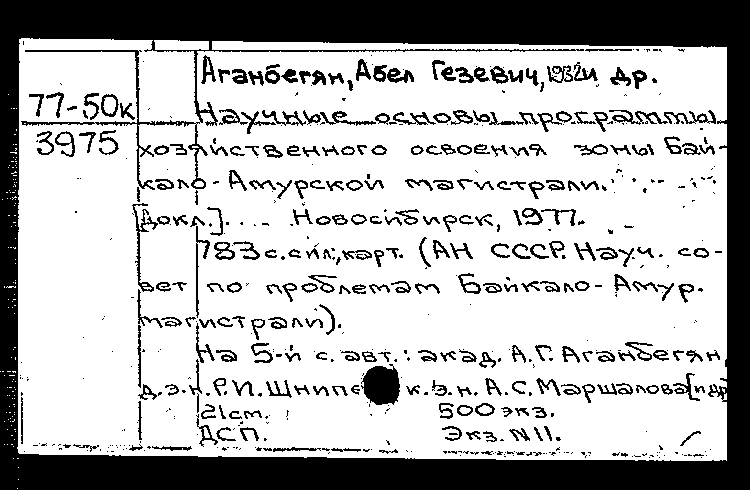 Аганбегян, Абел Гезевич, 1932 и др.
77-50к
Научные основы программы
3975
хозяйственного освоения зоны Бай-
кало-Амурской магистрали.
[Докл.].... Новосибирск, 1977.
783 с. с ил., карт. (АН СССР. Науч. со-
вет по проблемам Байкало-Амур.
магистрали).
На 5-й с. авт.: акад. А.Г. Аганбегян,
д.э.н. Р.И. Шнипе к.э.н. А.С. Маршалова [и др
21 см. 500 экз.
ДСП. Экз. N 11.